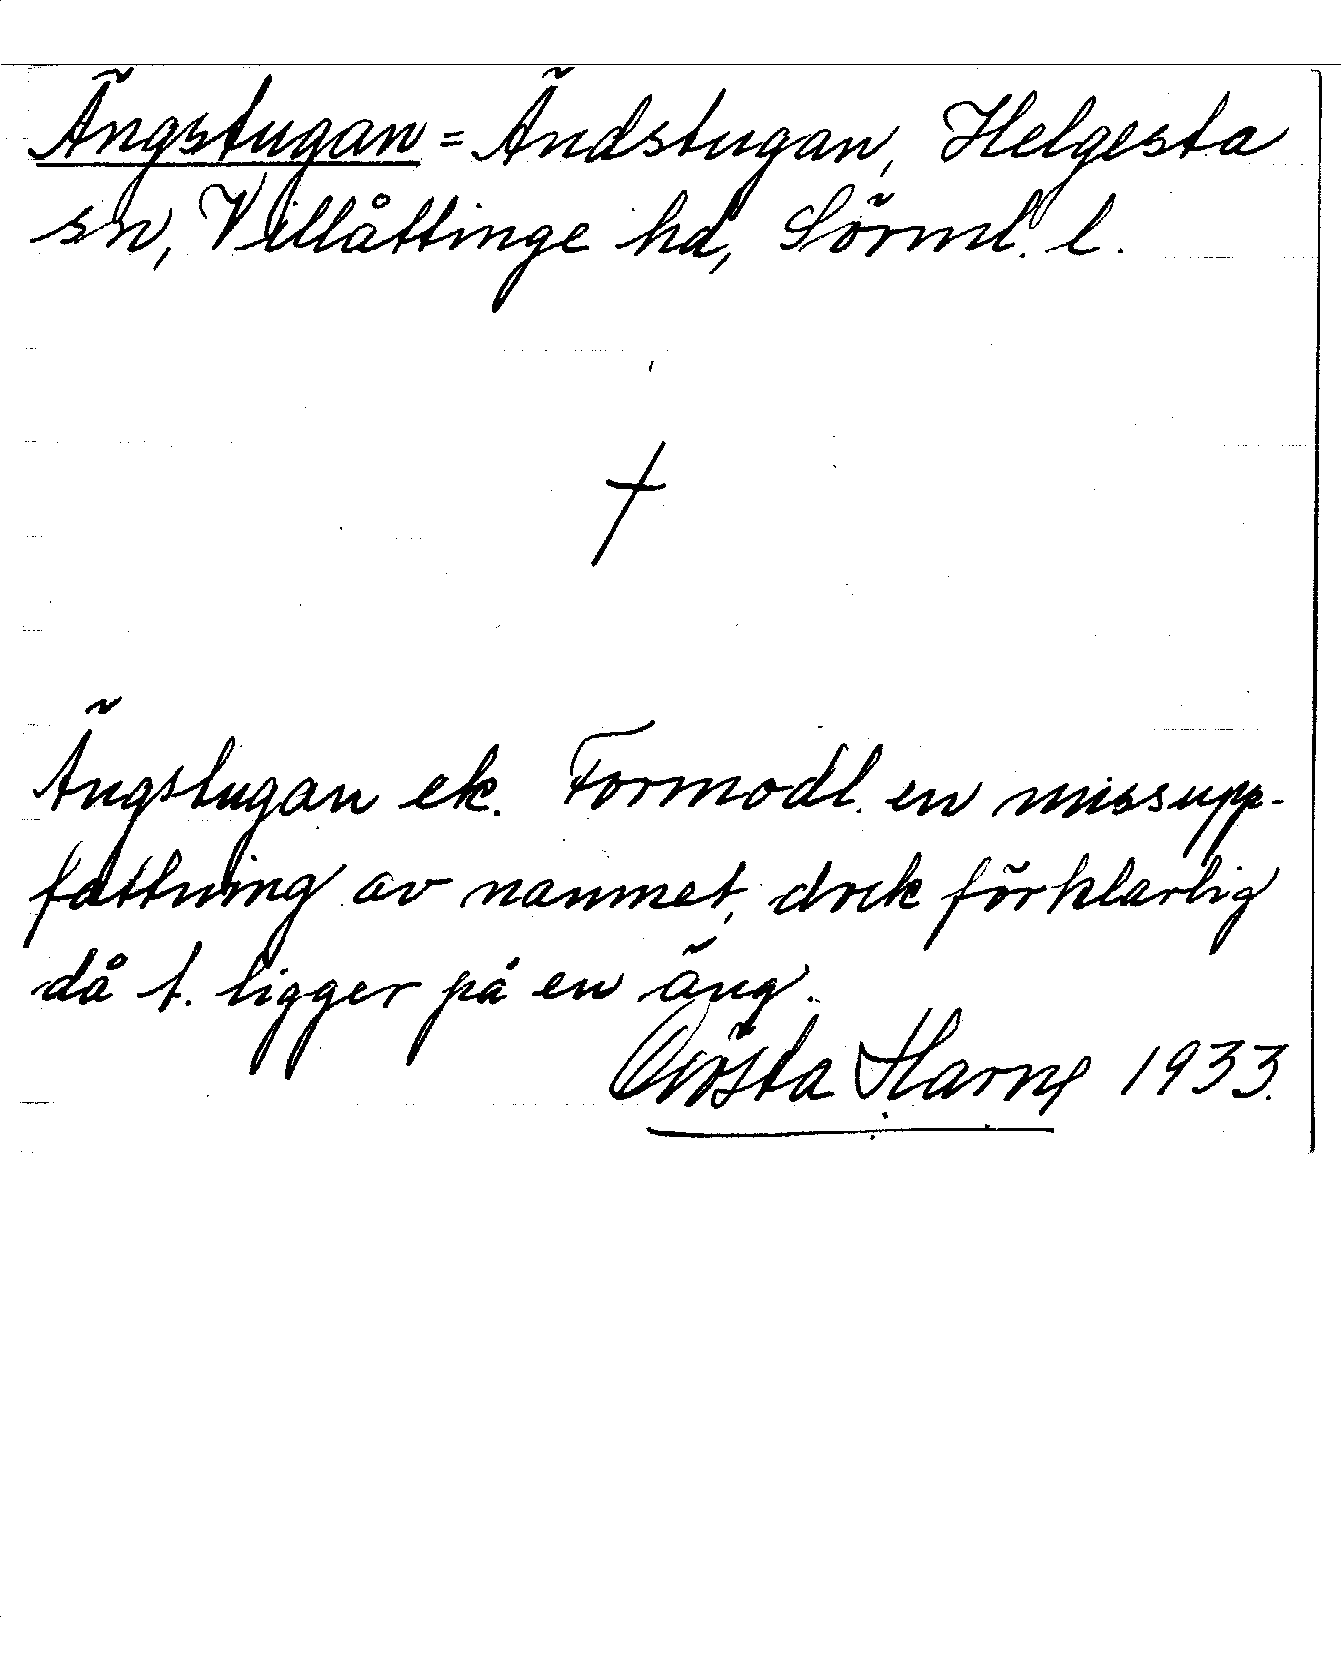 Ängstugan = Ändstugan, Helgesta
sn, Villåttinge hd, Sörml. l.
Ängstugan ek. Förmodl. en missupp-
fattning av namnet, dock förklarlig
då t. ligger på en äng.
Gösta Harne 1933.